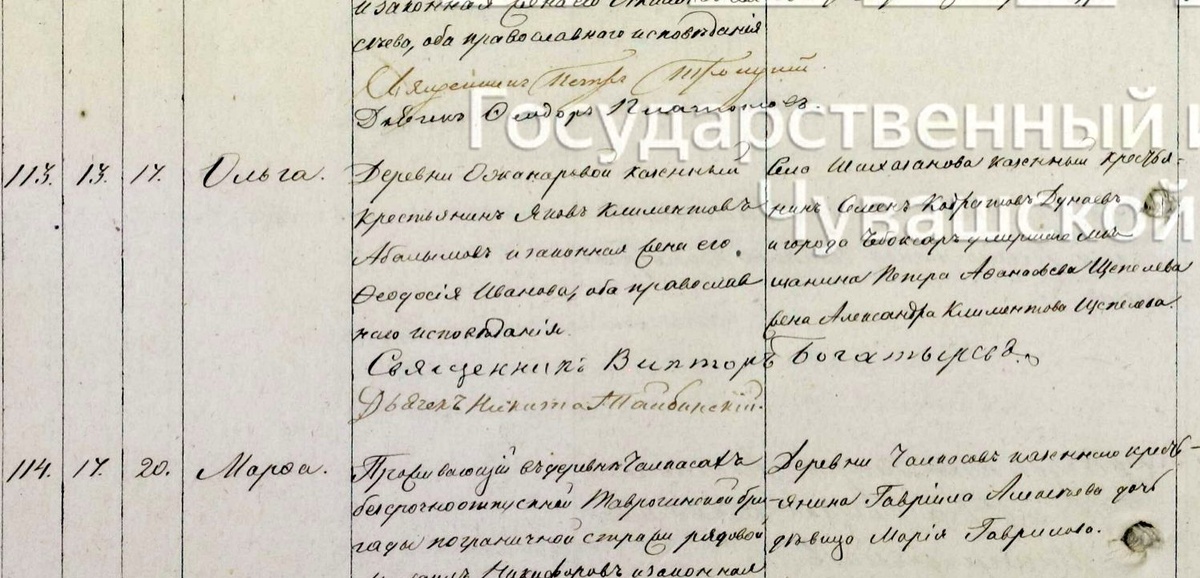 и законная жена его
слѣева, оба православнаго исповѣданія
Священникъ Петръ Троицкій.
Дьячекъ Ѳеодоръ Платоновъ.
Государственный
Чувашской
113. 13. 17. Ольга.
Деревни Ожанаръвой казенный
крестьянинъ Яковъ Климентовъ
Абалымовъ и законная жена его
Ѳеодосія Иванова, оба православ
наго исповѣданія.
Священникъ Викторъ Богатыревъ.
Дьячекъ Никита Тайбинскій.
Села Шихазанова казенный кресть-
янинъ Семенъ Кодратовъ Дунаевъ
и города Чебоксаръ умершаго мѣ
щанина Петра Аѳанасьева Щепелева
жена Александра Климентова Щепелева.
114. 17. 20. Марѳа.
Проживающій въ деревнѣ Чалпасахъ
безсрочноотпускной Таврогинской бри
гады пограничной стражи рядовой
Никифоровъ и законная
Деревни Чалпосовъ казеннаго кресть-
янина Гавріила Алексѣева дочь
дѣвица Марія Гаврилова.